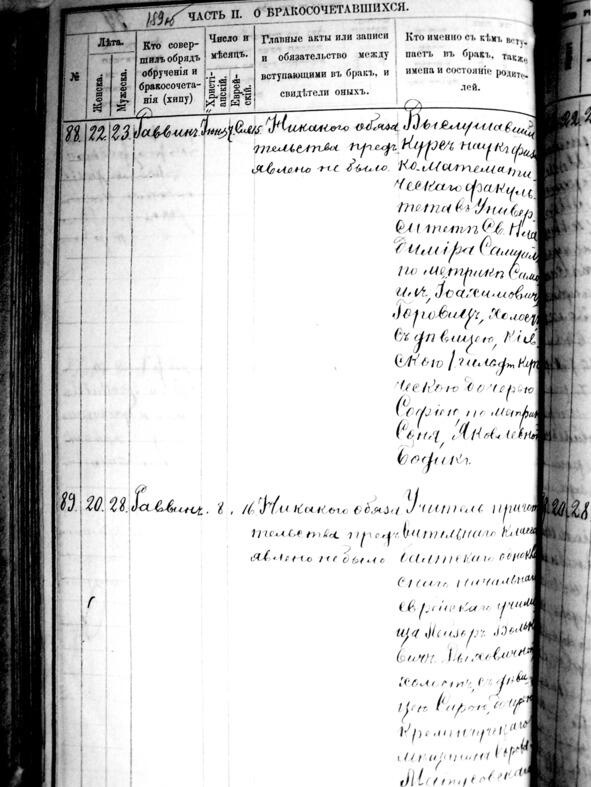 ЧАСТЬ II. О БРАКОСОЧЕТАВШИХСЯ.
№
Лѣта.
Женска.
Мужеска.
Кто совер-
шилъ обрядъ
обрученія и
бракосочета-
нія (хипу)
Число и
мѣсяцъ.
Христі-
анскій.
Еврей-
скій.
Главные акты или записи
и обязательство между
вступающими въ бракъ, и
свидѣтели оныхъ.
Кто именно съ кѣмъ всту-
паетъ въ бракъ, также
имена и состояніе родите-
лей.
88. 22. 23. Раввинъ
Никакого обяза
тельства предъ
явлено не было
Выслушавшій
Курсъ наукъ физи
ко математи-
ческаго факуль-
тета въ Универ-
ситетѣ Св. Вла
диміра Самуилъ
по метрикѣ Само
илъ, Іоахимовичъ
Горовицъ, холостъ
съ дѣвицею, Кіев-
скою
ческою дочерью
Софіею, по метрик
Соня, Яковлевной
Бодикъ
89. 20. 28. Раввинъ. 8. 16
Никакого обяза
тельства предъ
явлено не было
Учитель пригото
вительнаго класса
балтскаго
скаго начальнаго
еврейскаго учили
ща Лейзоръ Вольк
овичъ
холостъ, съ дѣви-
цею
Кременчугскаго